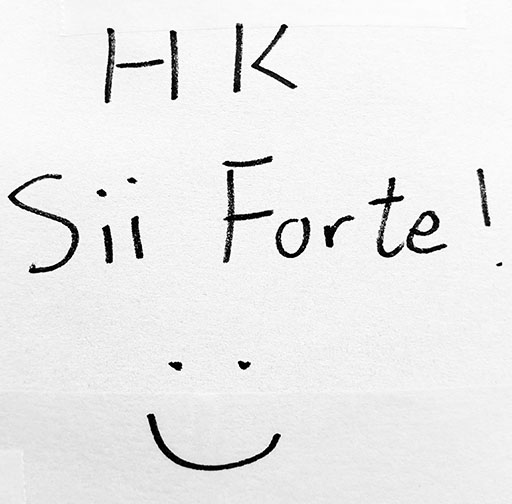 HK
Sii Forte!